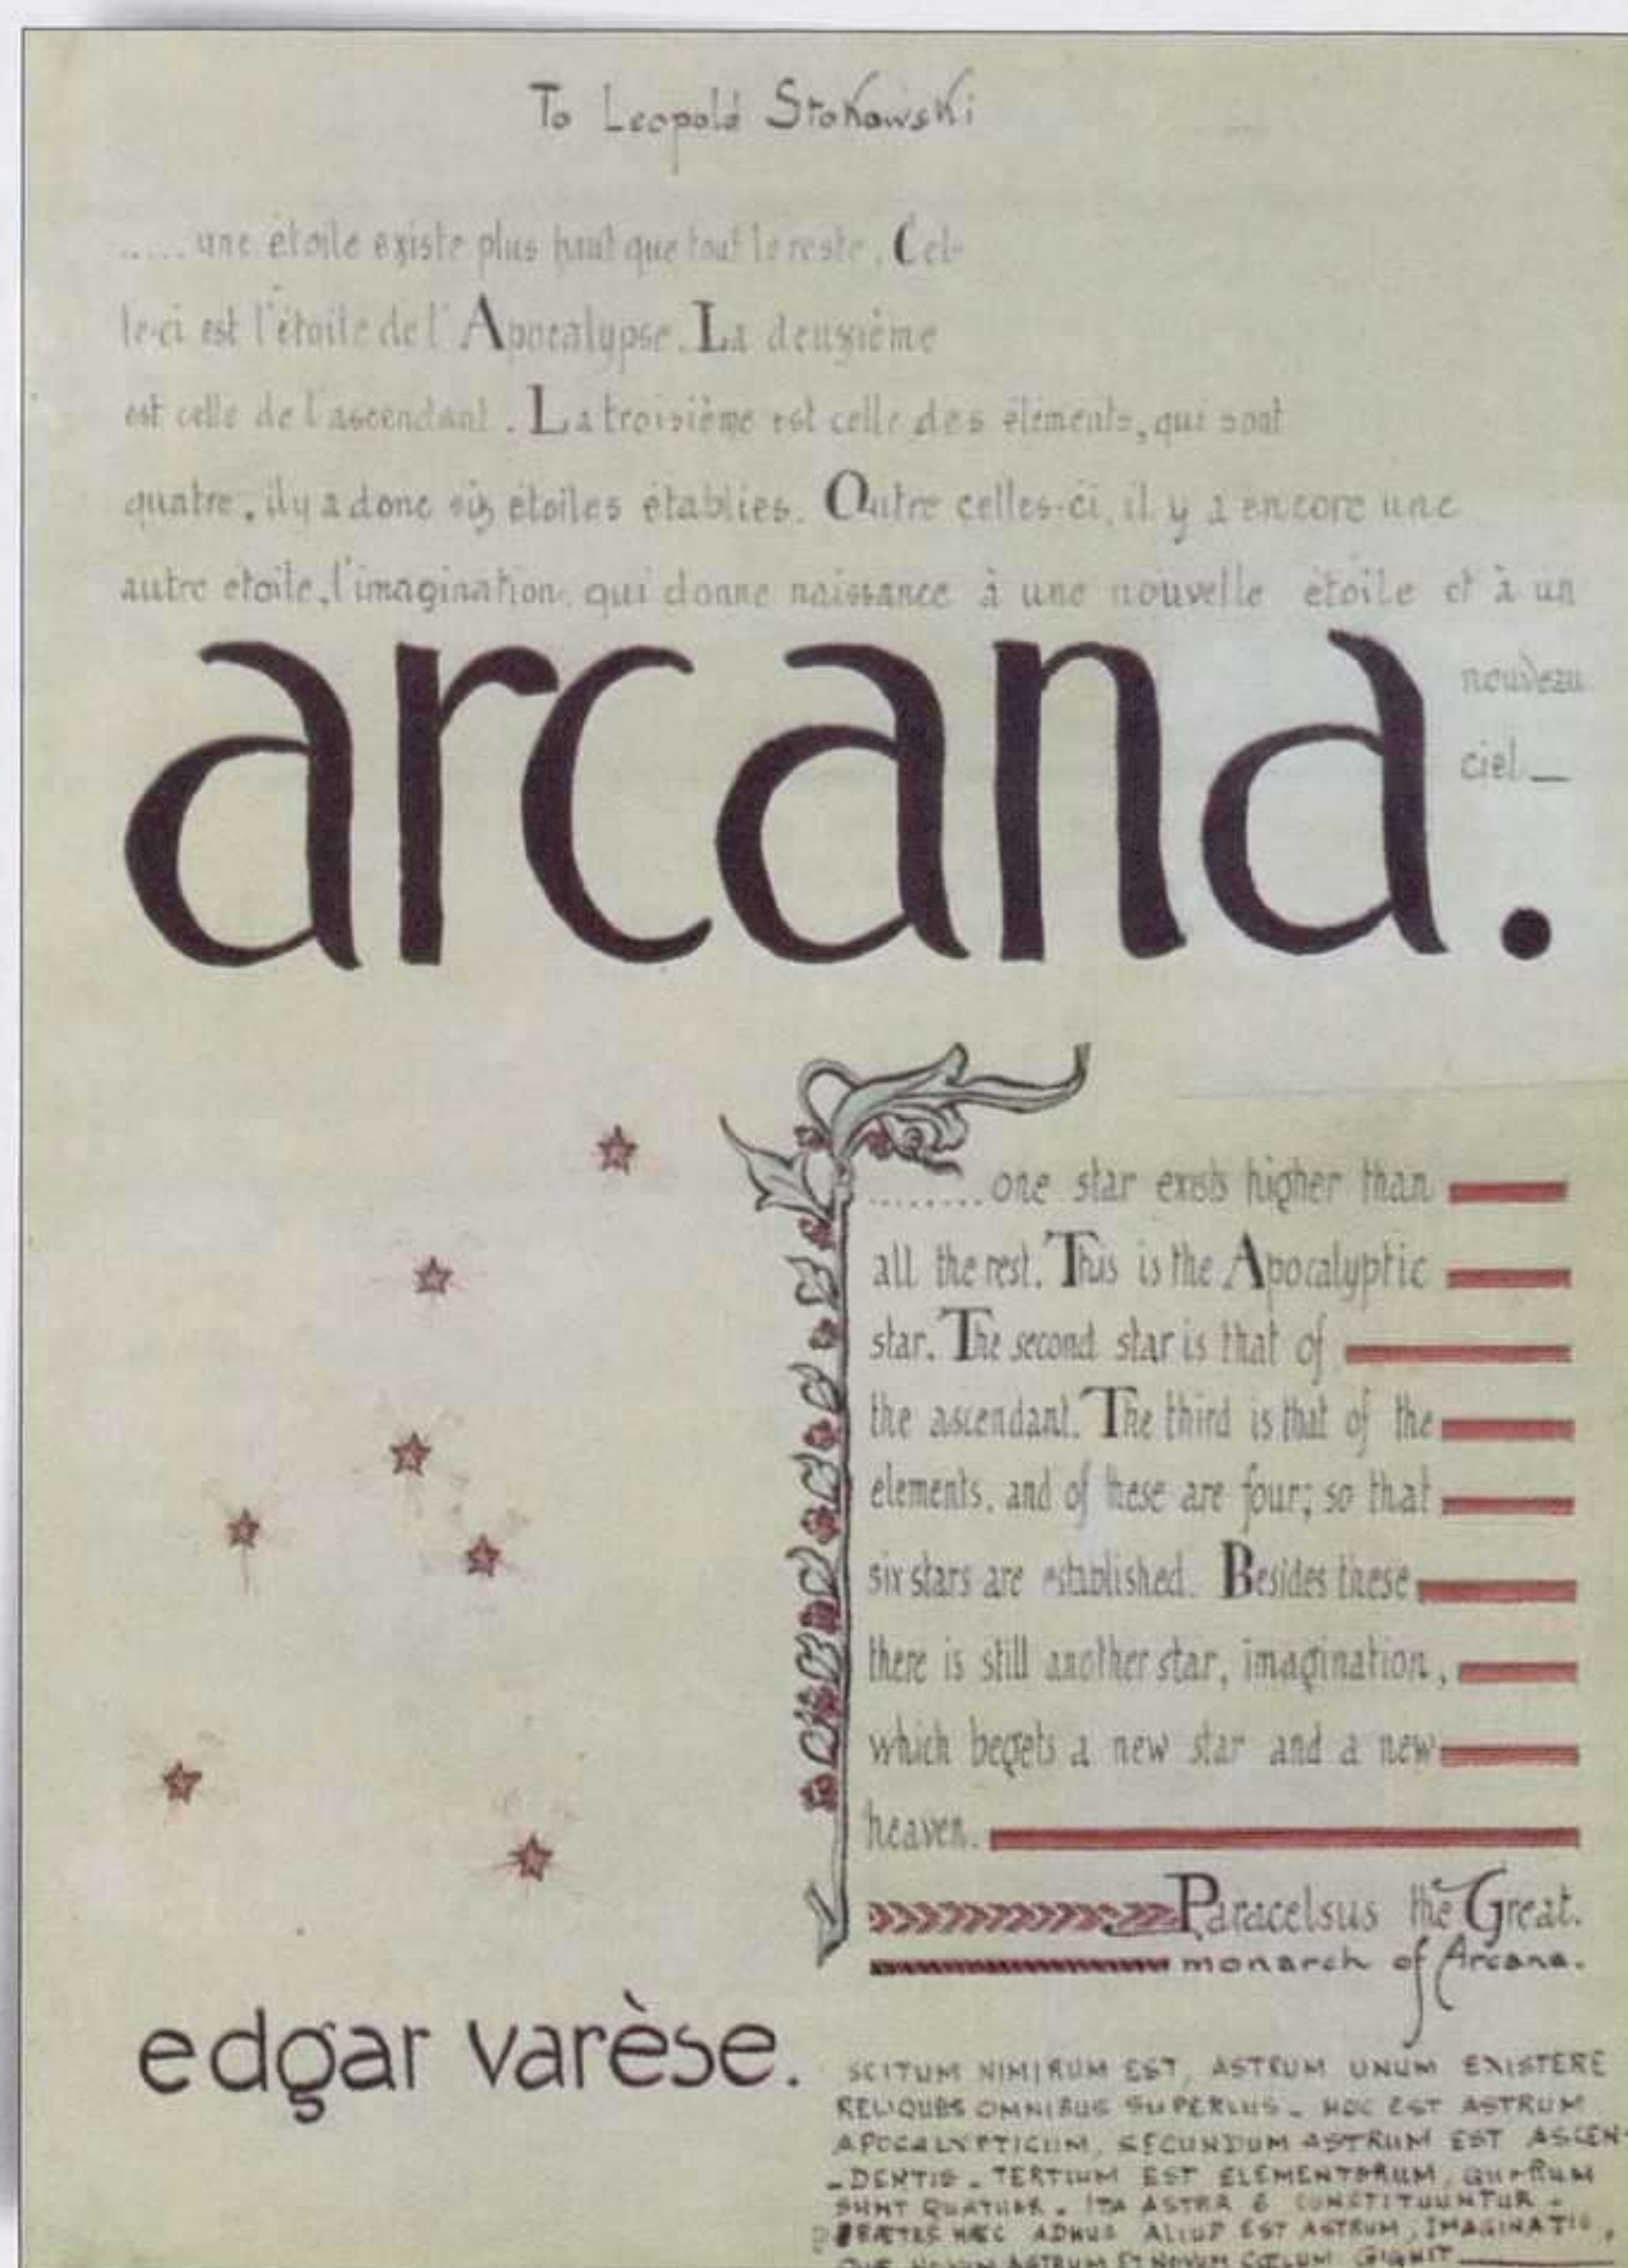 To Leopold Stokowski
..... une étoile existe plus haut que tout le reste. Cel-
le-ci est l'étoile de l'Apocalypse. La deuxième
est celle de l'ascendant. La troisième est celle des éléments, qui sont
quatre. il y a donc six étoiles établies. Outre celles-ci, il y a encore une
autre étoile, l'imagination, qui donne naissance à une nouvelle étoile et à un
nouveau
ciel. —
arcana.
........ one star exists higher than
all the rest. This is the Apocalyptic
star. The second star is that of
the ascendant. The third is that of the
elements, and of these are four; so that
six stars are established. Besides these
there is still another star, imagination,
which begets a new star and a new
heaven.
Paracelsus the Great.
monarch of Arcana.
edgar varèse.
SCITUM NIMIRUM EST, ASTRUM UNUM EXISTERE
RELIQUBS OMNIBUS SUPERIUS - HOC EST ASTRUM
APOCALYPTICUM, SECUNDUM ASTRUM EST ASCEN-
-DENTIS - TERTIUM EST ELEMENTORUM, QUORUM
SUNT QUATUOR - ITA ASTRA 6 CONSTITUUNTUR -
PRÆTER HÆC ADHUC ALIUD EST ASTRUM, IMAGINATIO,
QUÆ NOVUM ASTRUM ET NOVUM CŒLUM GIGNIT